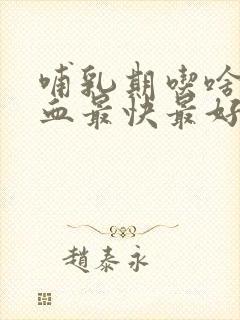 哺乳期喫啥
血最快最好
趙泰永